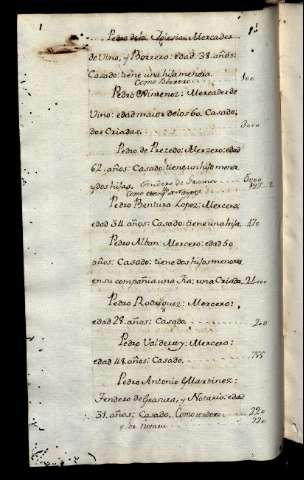 1
Pedro de la Yglesia: Mercader
de Vino, y Borrero: edad 38. años:
Casado: tiene una hija menor.
Como Borrero 300
Pedro Ximenez: Mercader de
Vino: edad maior de los 60. Casado,
dos Criadas. 3000
Pedro de Prezedo: Merzero: edad
62. años: Casado: tiene un hijo menor
y dos hijas. 6000
Pedro Bentura Lopez: Mercero:
edad 34. años: Casado: tiene una hija. 170
Pedro Alban: Mercero: edad 60
años: Casado: tiene dos hijas menores
en su compañia una tia: una Criada.
Pedro Rodriguez: Mercero:
edad 28. años: Casado. 200
Pedro Valderay: Mercero:
edad 48. años: Casado.
Pedro Antonio Martinez:
Tendero de Granura, y Notario: edad
31. años: Casado. Como tendero 220